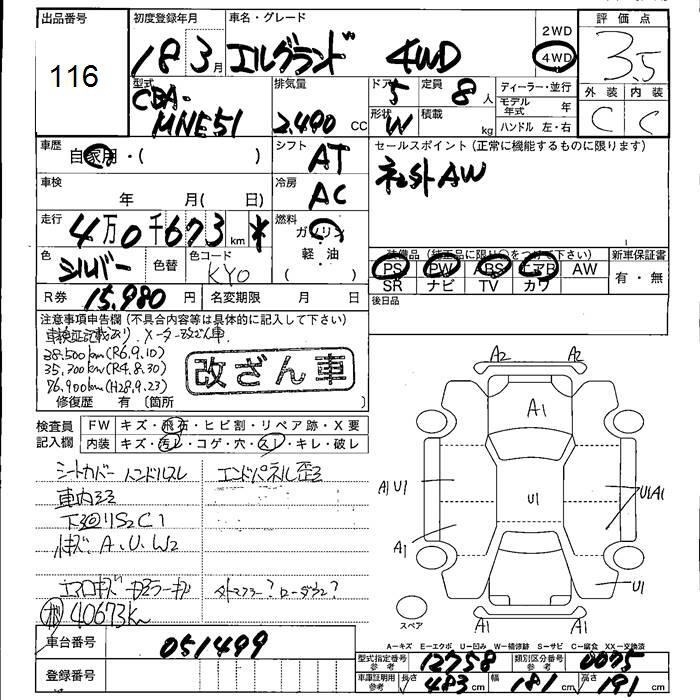 出品番号 初度登録年月 車名・グレード 2WD 評価点
116 18 3月 エルグランド 4WD 4WD 3.5
型式 排気量 ドア 定員 ディーラー・並行 外装 内装
CBA- 5 8人 モデル年式 年 C C
MNE51 2,490 CC 形状 W 積載 kg ハンドル 左・右
車歴 自家用・( ) シフト AT セールスポイント(正常に機能するものに限ります)
車検 年 月( 日) 冷房 AC 社外AW
走行 4万0千673km * 燃料 ガソリン
軽・油
色 シルバー 色替 色コード KYO 装備品(純正品に限り○をつけて下さい) 新車保証書
PS PW ABS エアB AW 有・無
SR ナビ TV カワ
R券 15,980円 名変期限 月 日 後日品
注意事項申告欄(不具合内容等は具体的に記入して下さい)
車検証記載あり メーター改ざん車
38,500km(R6.9.10)
35,700km(R4.8.30)
76,900km(H28.9.23)
改ざん車
修復歴 有 〔箇所
検査員記入欄 FW キズ・飛石・ヒビ割・リペア跡・X要
内装 キズ・汚レ・コゲ・穴・スレ・キレ・破レ
シートカバー ハンドルスレ エンドパネル歪
車内
下回りS2C1
小キズ A、U、W2
エアロキズ ミラーキズ 外マフラー? ローダウン?
40673km
A2 A2
A1
A1 U1 U1 U1A1
A1 U1
スペア A1 A1
A-キズ E-エクボ U-凹み W-補修跡 S-サビ C-腐食 XX-交換済
車台番号 051499
型式指定番号参考 12758 類別区分番号参考 0075
登録番号
車庫証明用参考 長さ 483cm 幅 181cm 高さ 191cm